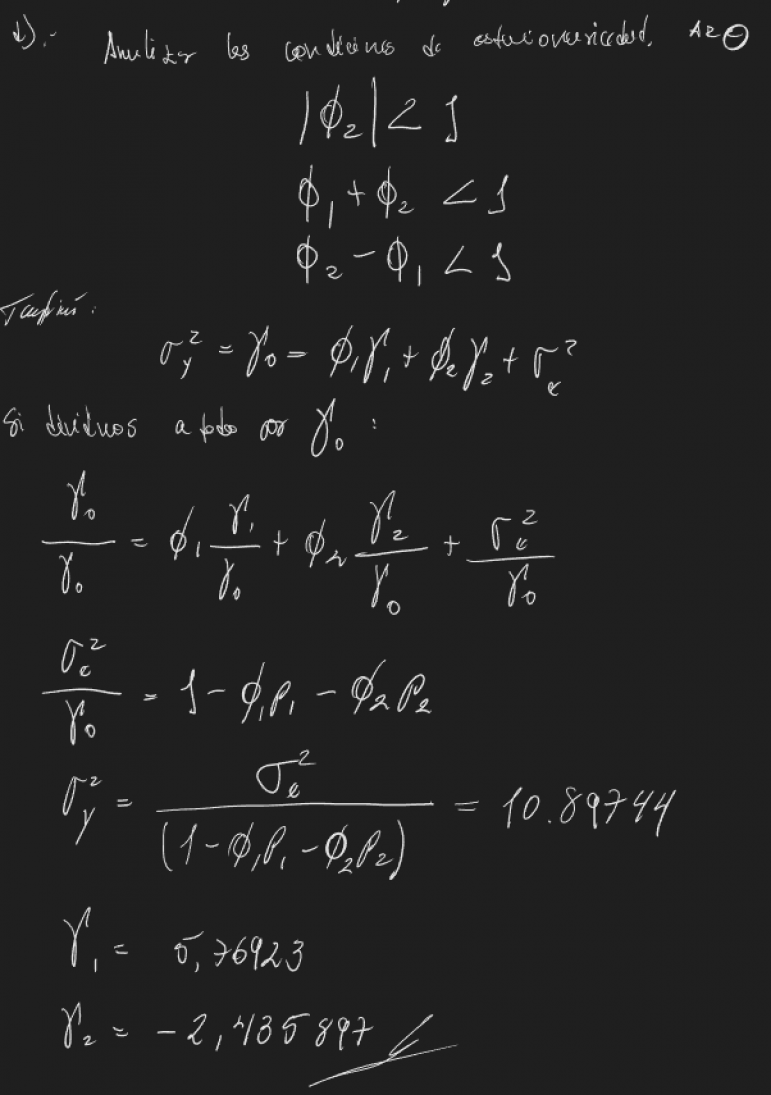 1).- Analizar las condiciones de estacionariedad. AR2
|ϕ₂| < 1
ϕ₁ + ϕ₂ < 1
ϕ₂ - ϕ₁ < 1
También:
σ_y² = γ₀ = ϕ₁γ₁ + ϕ₂γ₂ + σ_ε²
Si dividimos a todo por γ₀ :
γ₀/γ₀ = ϕ₁ γ₁/γ₀ + ϕ₂ γ₂/γ₀ + σ_ε²/γ₀
σ_ε²/γ₀ = 1 - ϕ₁ρ₁ - ϕ₂ρ₂
σ_y² = σ_ε²/(1 - ϕ₁ρ₁ - ϕ₂ρ₂) = 10.89744
γ₁ = 5,76923
γ₂ = -2,435897